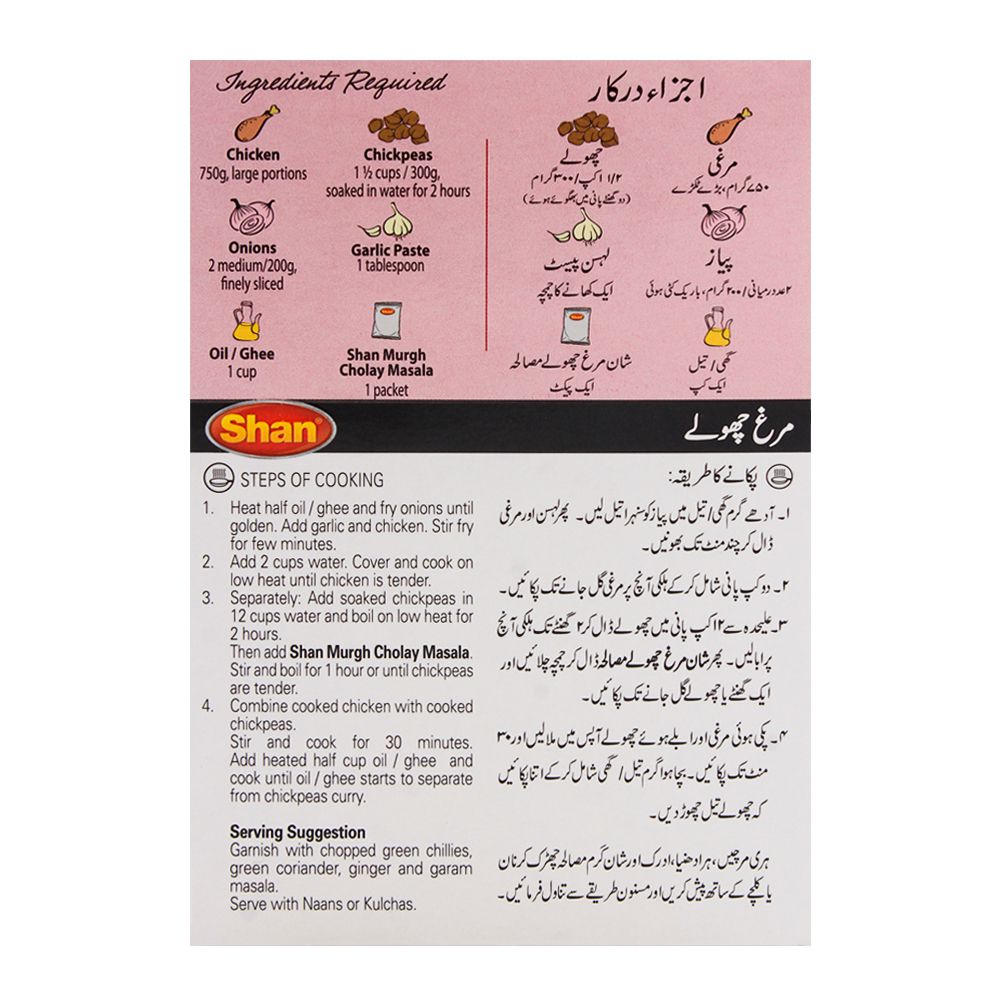 Ingredients Required
Chicken
750g, large portions
Chickpeas
1 ½ cups / 300g,
soaked in water for 2 hours
Onions
2 medium/200g,
finely sliced
Garlic Paste
1 tablespoon
Oil / Ghee
1 cup
Shan
Shan Murgh
Cholay Masala
1 packet
اجزاء درکار
مرغی
۷۵۰ گرام، بڑے ٹکڑے
چھولے
۱ ۱/۲ کپ/۳۰۰ گرام
(دو گھنٹے پانی میں بھگوئے ہوئے)
پیاز
۲ عدد درمیانی/۲۰۰ گرام، باریک کٹی ہوئی
لہسن پیسٹ
ایک کھانے کا چمچہ
گھی/تیل
ایک کپ
Shan
شان مرغ چھولے مصالحہ
ایک پیکٹ
Shan
مرغ چھولے
STEPS OF COOKING
1. Heat half oil / ghee and fry onions until
golden. Add garlic and chicken. Stir fry
for few minutes.
2. Add 2 cups water. Cover and cook on
low heat until chicken is tender.
3. Separately: Add soaked chickpeas in
12 cups water and boil on low heat for
2 hours.
Then add Shan Murgh Cholay Masala.
Stir and boil for 1 hour or until chickpeas
are tender.
4. Combine cooked chicken with cooked
chickpeas.
Stir and cook for 30 minutes.
Add heated half cup oil / ghee and
cook until oil / ghee starts to separate
from chickpeas curry.
Serving Suggestion
Garnish with chopped green chillies,
green coriander, ginger and garam
masala.
Serve with Naans or Kulchas.
پکانے کا طریقہ:
۱۔ آدھے گرم گھی/تیل میں پیاز کو سنہرا تیل لیں۔ پھر لہسن اور مرغی
ڈال کر چند منٹ تک بھونیں۔
۲۔ دو کپ پانی شامل کرکے ہلکی آنچ پر مرغی گل جانے تک پکائیں۔
۳۔ علیحدہ سے ۱۲ کپ پانی میں چھولے ڈال کر ۲ گھنٹے تک ہلکی آنچ
پر ابالیں۔ پھر شان مرغ چھولے مصالحہ ڈال کر چمچہ چلائیں اور
ایک گھنٹے یا چھولے گل جانے تک پکائیں۔
۴۔ پکی ہوئی مرغی اور ابلے ہوئے چھولے آپس میں ملالیں اور ۳۰
منٹ تک پکائیں۔ بچا ہوا گرم تیل/گھی شامل کرکے اتنا پکائیں
کہ چھولے تیل چھوڑ دیں۔
ہری مرچیں، ہرا دھنیا، ادرک اور شان گرم مصالحہ چھڑک کر نان
یا کلچے کے ساتھ پیش کریں اور مسنون طریقے سے تناول فرمائیں۔